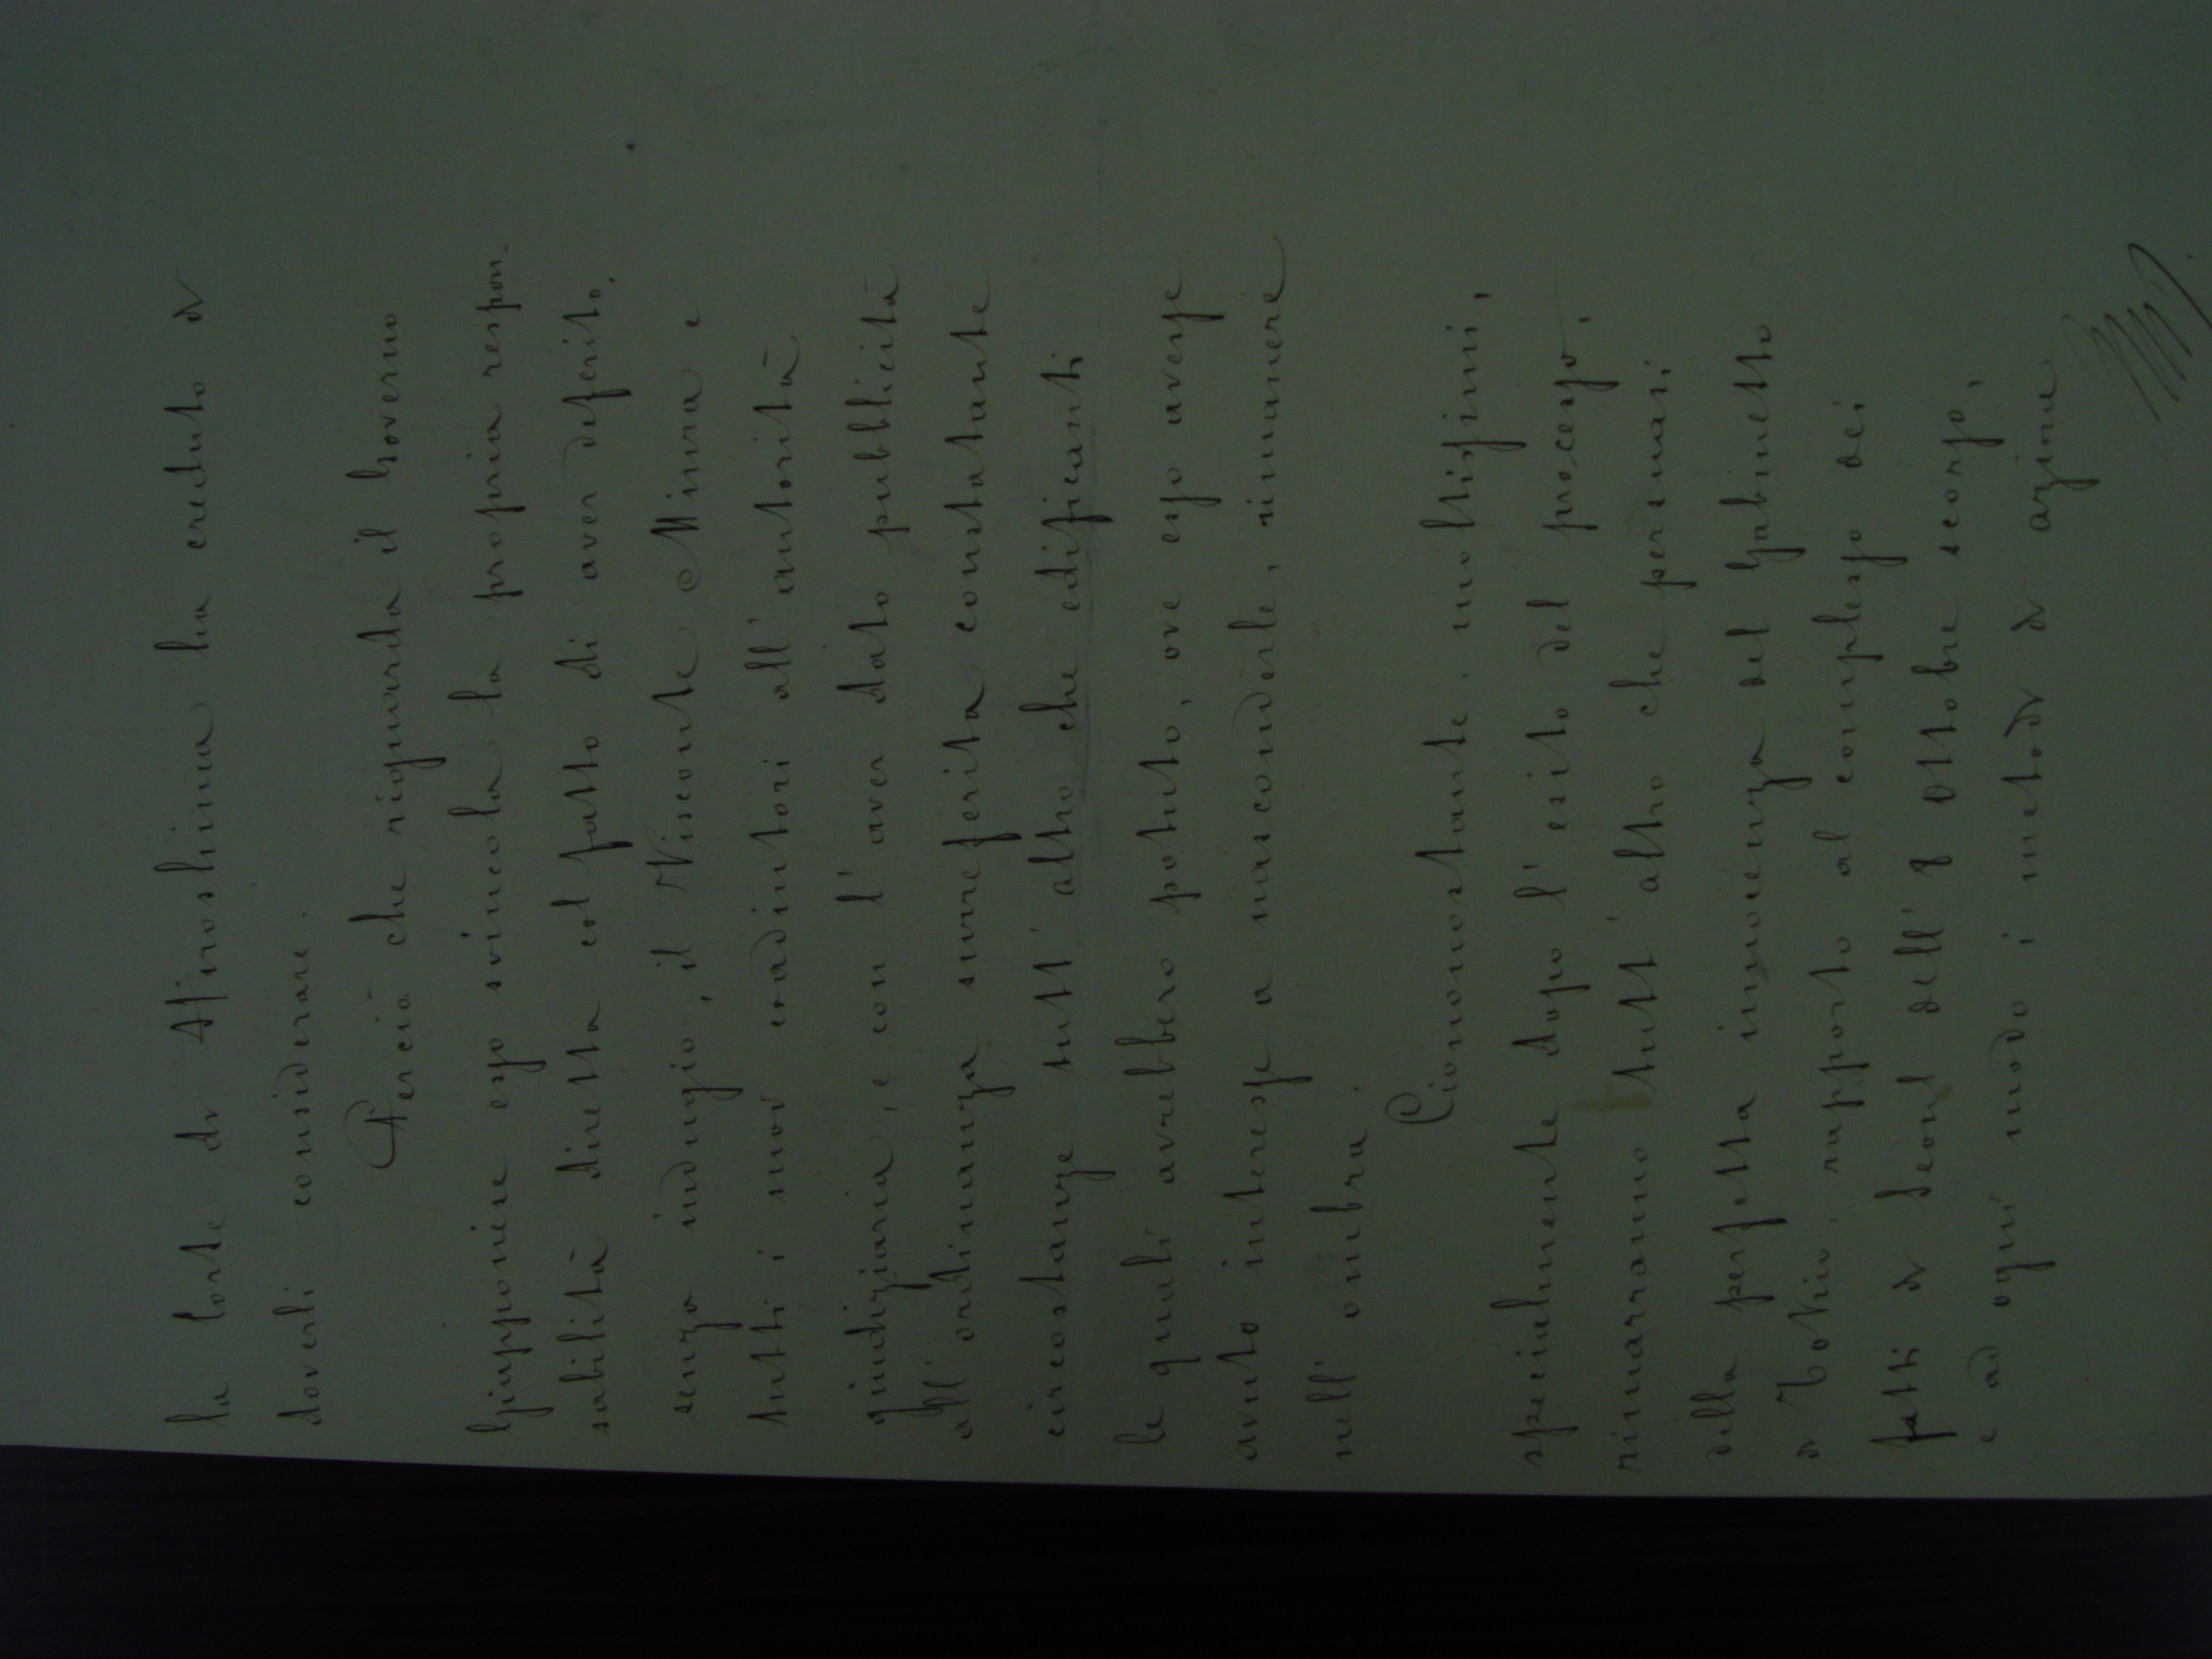 la Corte di Hiroshima ha creduto di
doverli considerare.
Perciò che riguarda il Governo
Giapponese esso svincola la propria respon-
sabilità diretta col fatto di aver deferito,
senza indugio, il Visconte Miura e
tutti i suoi coadiutori all'autorità
giudiziaria, e con l'aver dato pubblicità
all'ordinanza surreferita constatante
circostanze tutt'altro che edificanti
le quali avrebbero potuto, ove esso avesse
avuto interesse a nasconderle, rimanere
nell'ombra.
Ciononostante, moltissimi,
specialmente dopo l'esito del processo,
rimarranno tutt'altro che persuasi
della perfetta innocenza del Gabinetto
di Tokio, rapporto al complesso dei
fatti di Seoul dell'8 ottobre scorso,
e ad ogni modo i metodi di azione